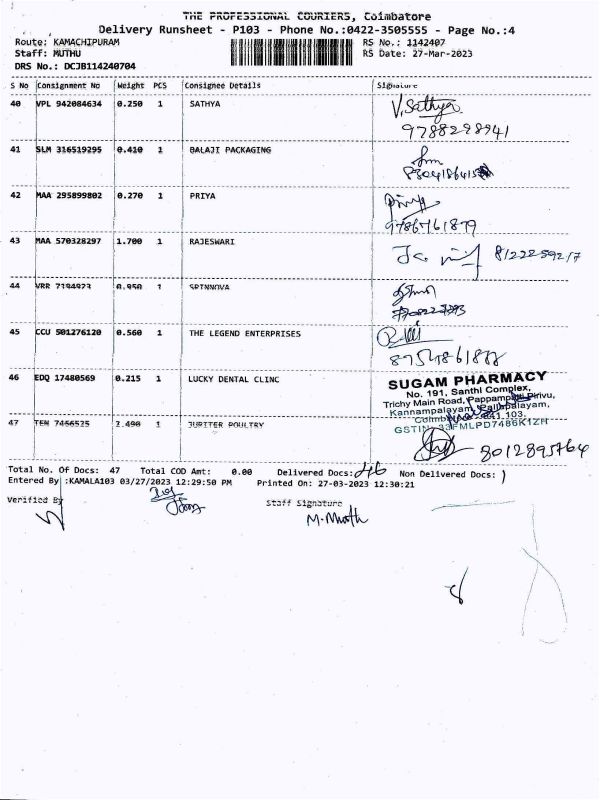 THE PROFESSIONAL COURIERS, Coimbatore
Delivery Runsheet - P103 - Phone No.:0422-3505555 - Page No.:4
Route: KAMACHIPURAM RS No.: 1142407
Staff: MUTHU RS Date: 27-Mar-2023
DRS No.: DCJB114240704
S No Consignment No Weight PCS Consignee Details Signature
40 VPL 942084634 0.250 1 SATHYA V.Sathya
9788298941
41 SLM 316519295 0.410 1 BALAJI PACKAGING
42 MAA 295899802 0.270 1 PRIYA Priya
9786761879
43 MAA 570328297 1.700 1 RAJESWARI 8122259217
44 VRR 7194923 0.950 1 SPINNOVA
45 CCU 501276120 0.560 1 THE LEGEND ENTERPRISES
46 EDQ 17480569 0.215 1 LUCKY DENTAL CLINC
SUGAM PHARMACY
No. 191, Santhi Complex,
Trichy Main Road, Pappampatti Pirivu,
Kannampalayam, Pallapalayam,
GSTIN: 33FMLPD7486K1ZH
47 TEN 7466525 2.490 1 JUPITER POULTRY 8012895764
Total No. Of Docs: 47 Total COD Amt: 0.00 Delivered Docs: 46 Non Delivered Docs: 1
Entered By :KAMALA103 03/27/2023 12:29:50 PM Printed On: 27-03-2023 12:30:21
Verified By Staff Signature
M. Muoth